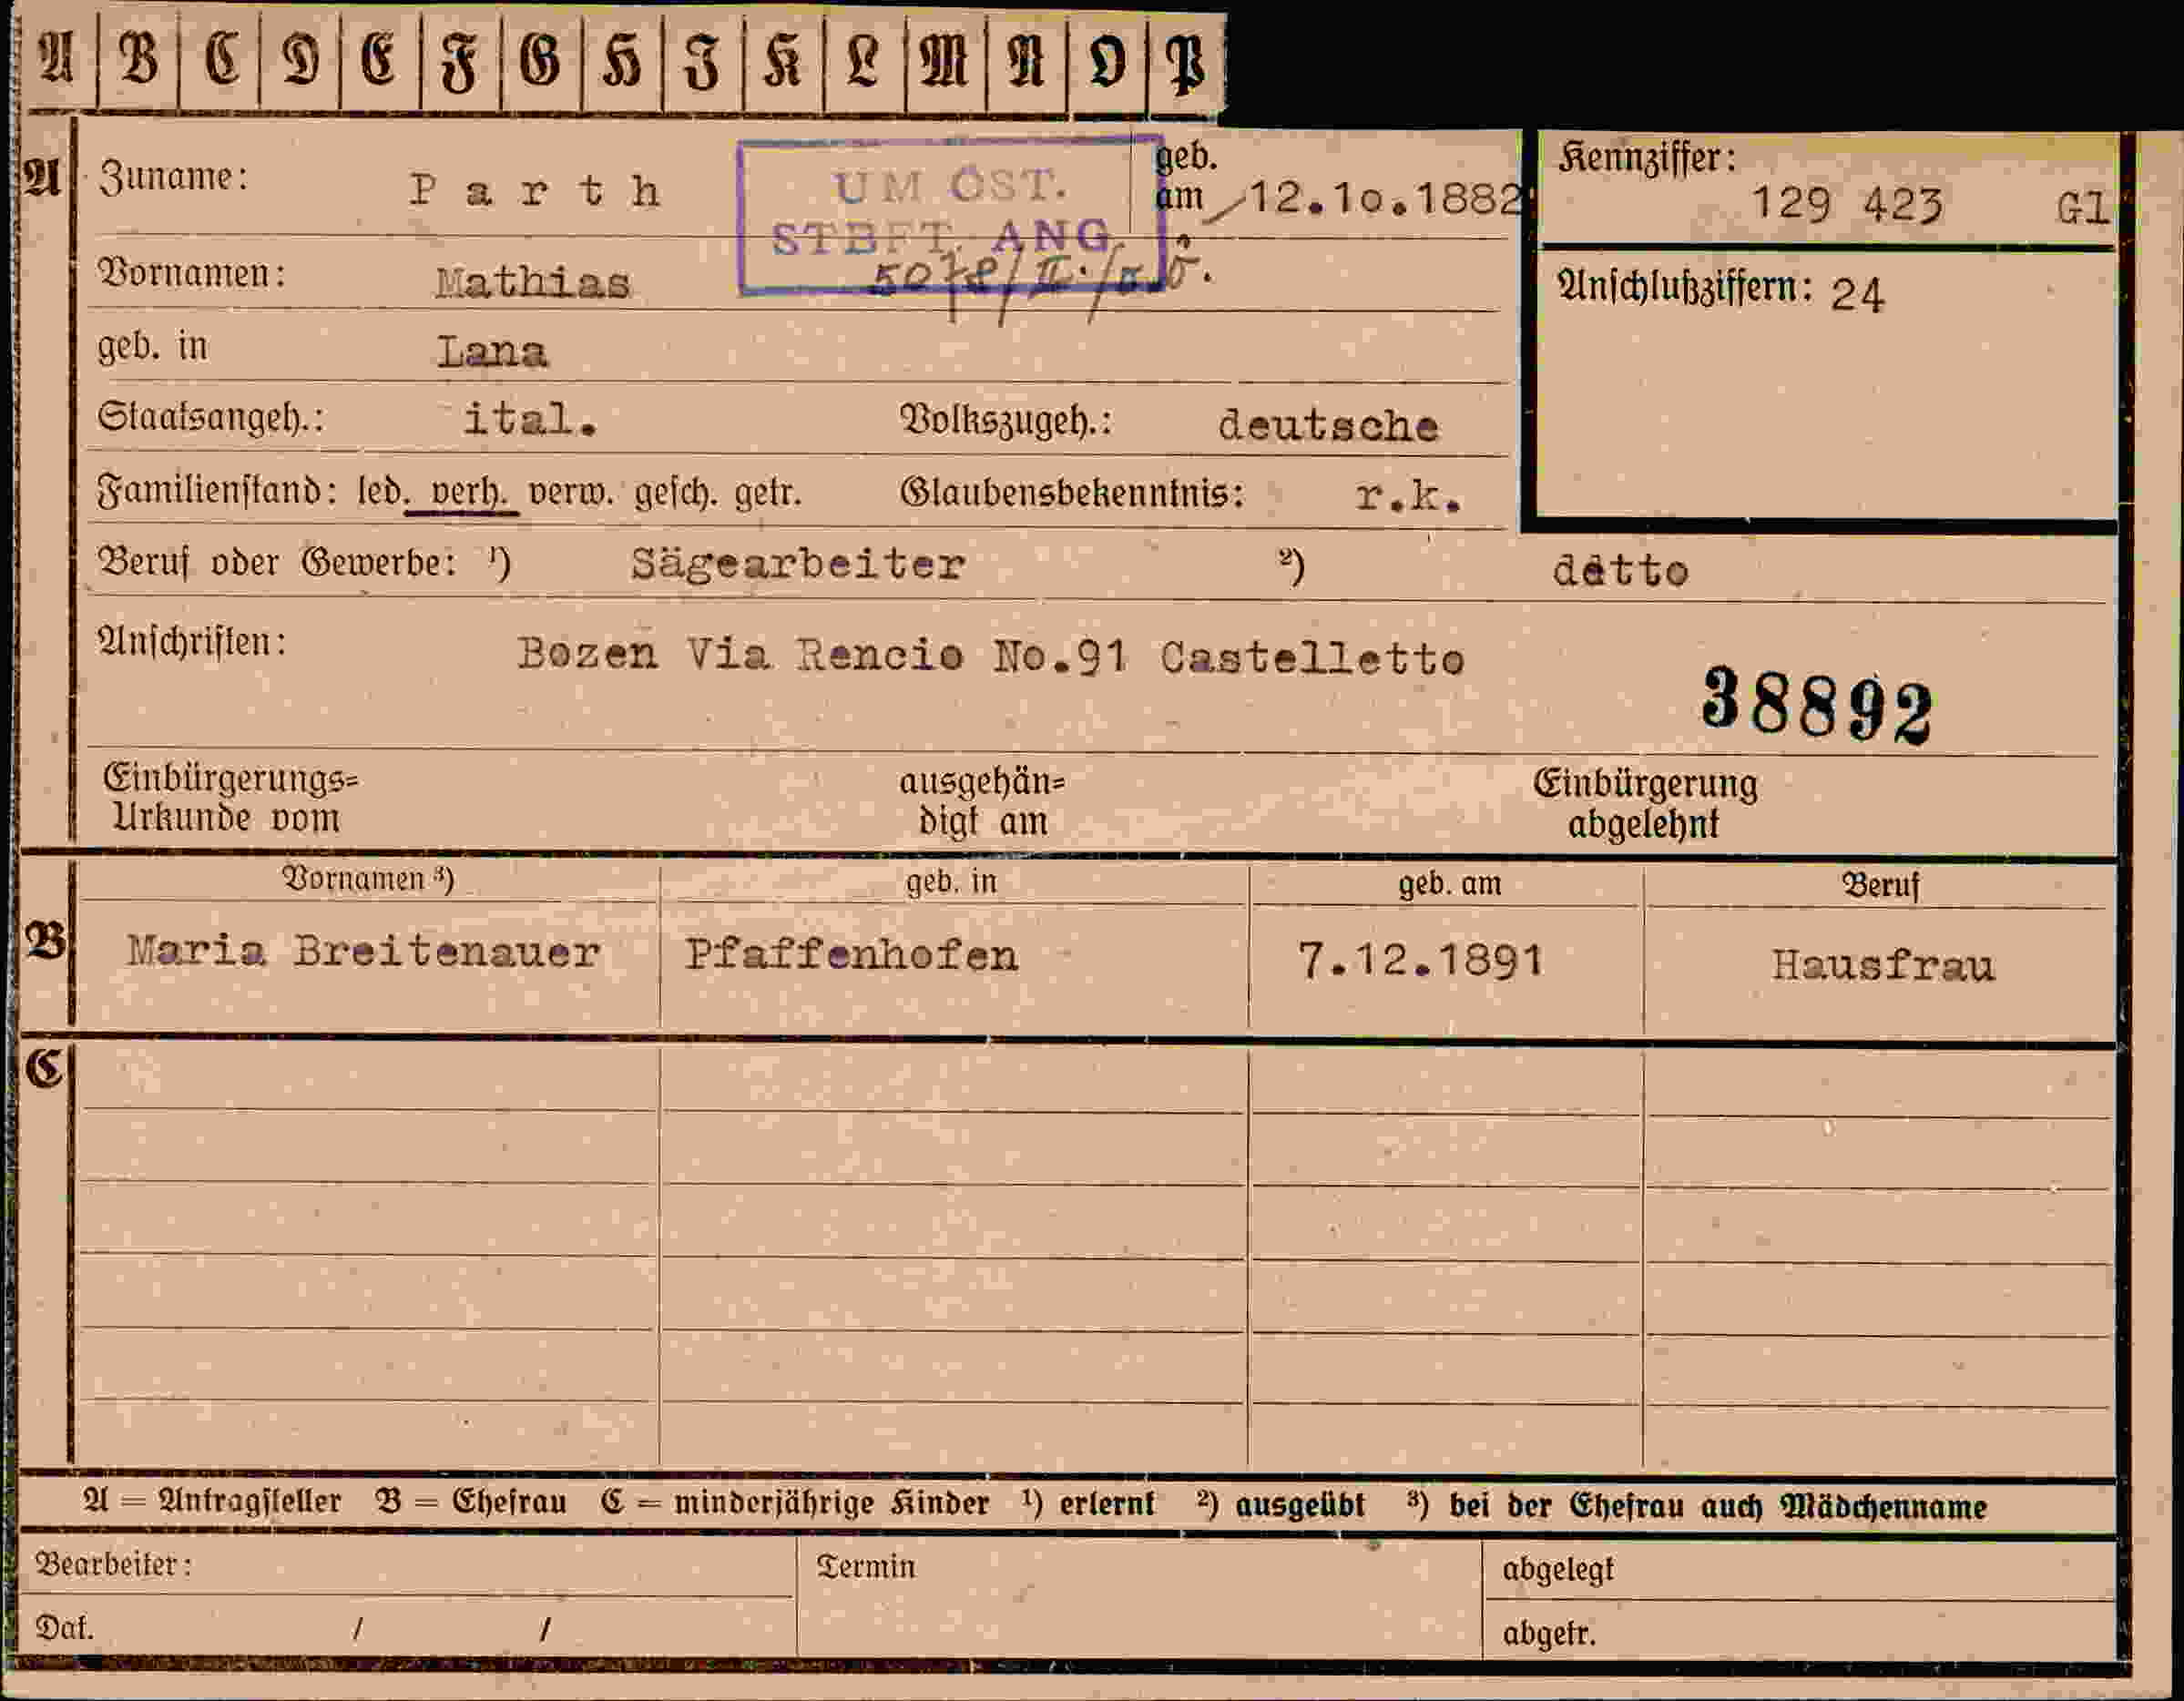 A B C D E F G H I K L M N O P
A Zuname: Parth geb. am 12.10.1882 Kennziffer: 129 423 Gl
UM ÖST.
STBFT. ANG.
Vornamen: Mathias Anschlußziffern: 24
geb. in Lana
Staatsangeh.: ital. Volkszugeh.: deutsche
Familienstand: led. verh. verw. gesch. getr. Glaubensbekenntnis: r.k.
Beruf oder Gewerbe: ¹) Sägearbeiter ²) detto
Anschriften: Bozen Via Rencio No.91 Castelletto
38892
Einbürgerungs= ausgehän= Einbürgerung
Urkunde vom digt am abgelehnt
Vornamen ³) geb. in geb. am Beruf
B Maria Breitenauer Pfaffenhofen 7.12.1891 Hausfrau
C
A = Antragsteller B = Ehefrau C = minderjährige Kinder ¹) erlernt ²) ausgeübt ³) bei der Ehefrau auch Mädchenname
Bearbeiter: Termin abgelegt
Dat. / / abgetr.